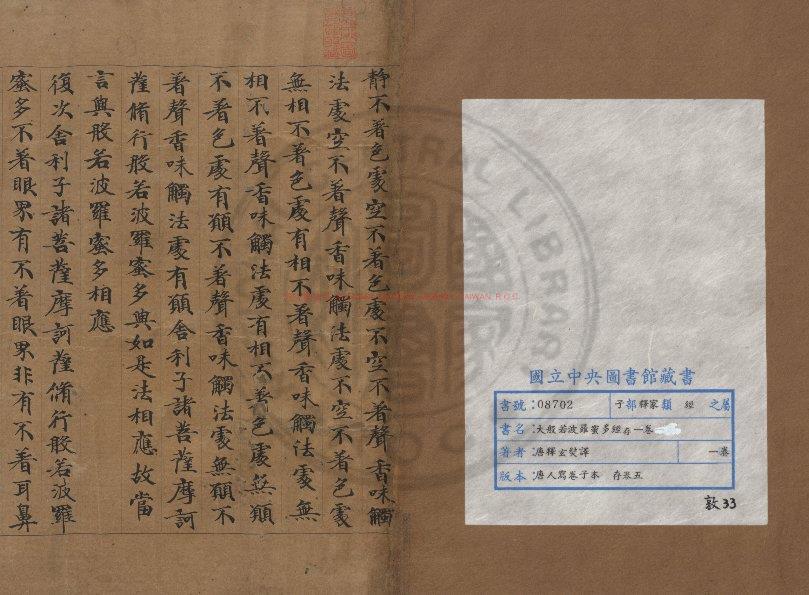 國立中央圖書館藏書
書號：08702 子部 釋家類 經 之屬
書名：大般若波羅蜜多經存一卷
著者：唐釋玄奘譯 一卷
版本：唐人寫卷子本 存卷五
敦33
靜不著色處空不著色處不空不著聲香味觸
法處空不著聲香味觸法處不空不著色處
無相不著色處有相不著聲香味觸法處無
相不著聲香味觸法處有相不著色處無願
不著色處有願不著聲香味觸法處無願不
著聲香味觸法處有願舍利子諸菩薩摩訶
薩脩行般若波羅蜜多與如是法相應故當
言與般若波羅蜜多相應
復次舍利子諸菩薩摩訶薩脩行般若波羅
蜜多不著眼界有不著眼界非有不著耳鼻